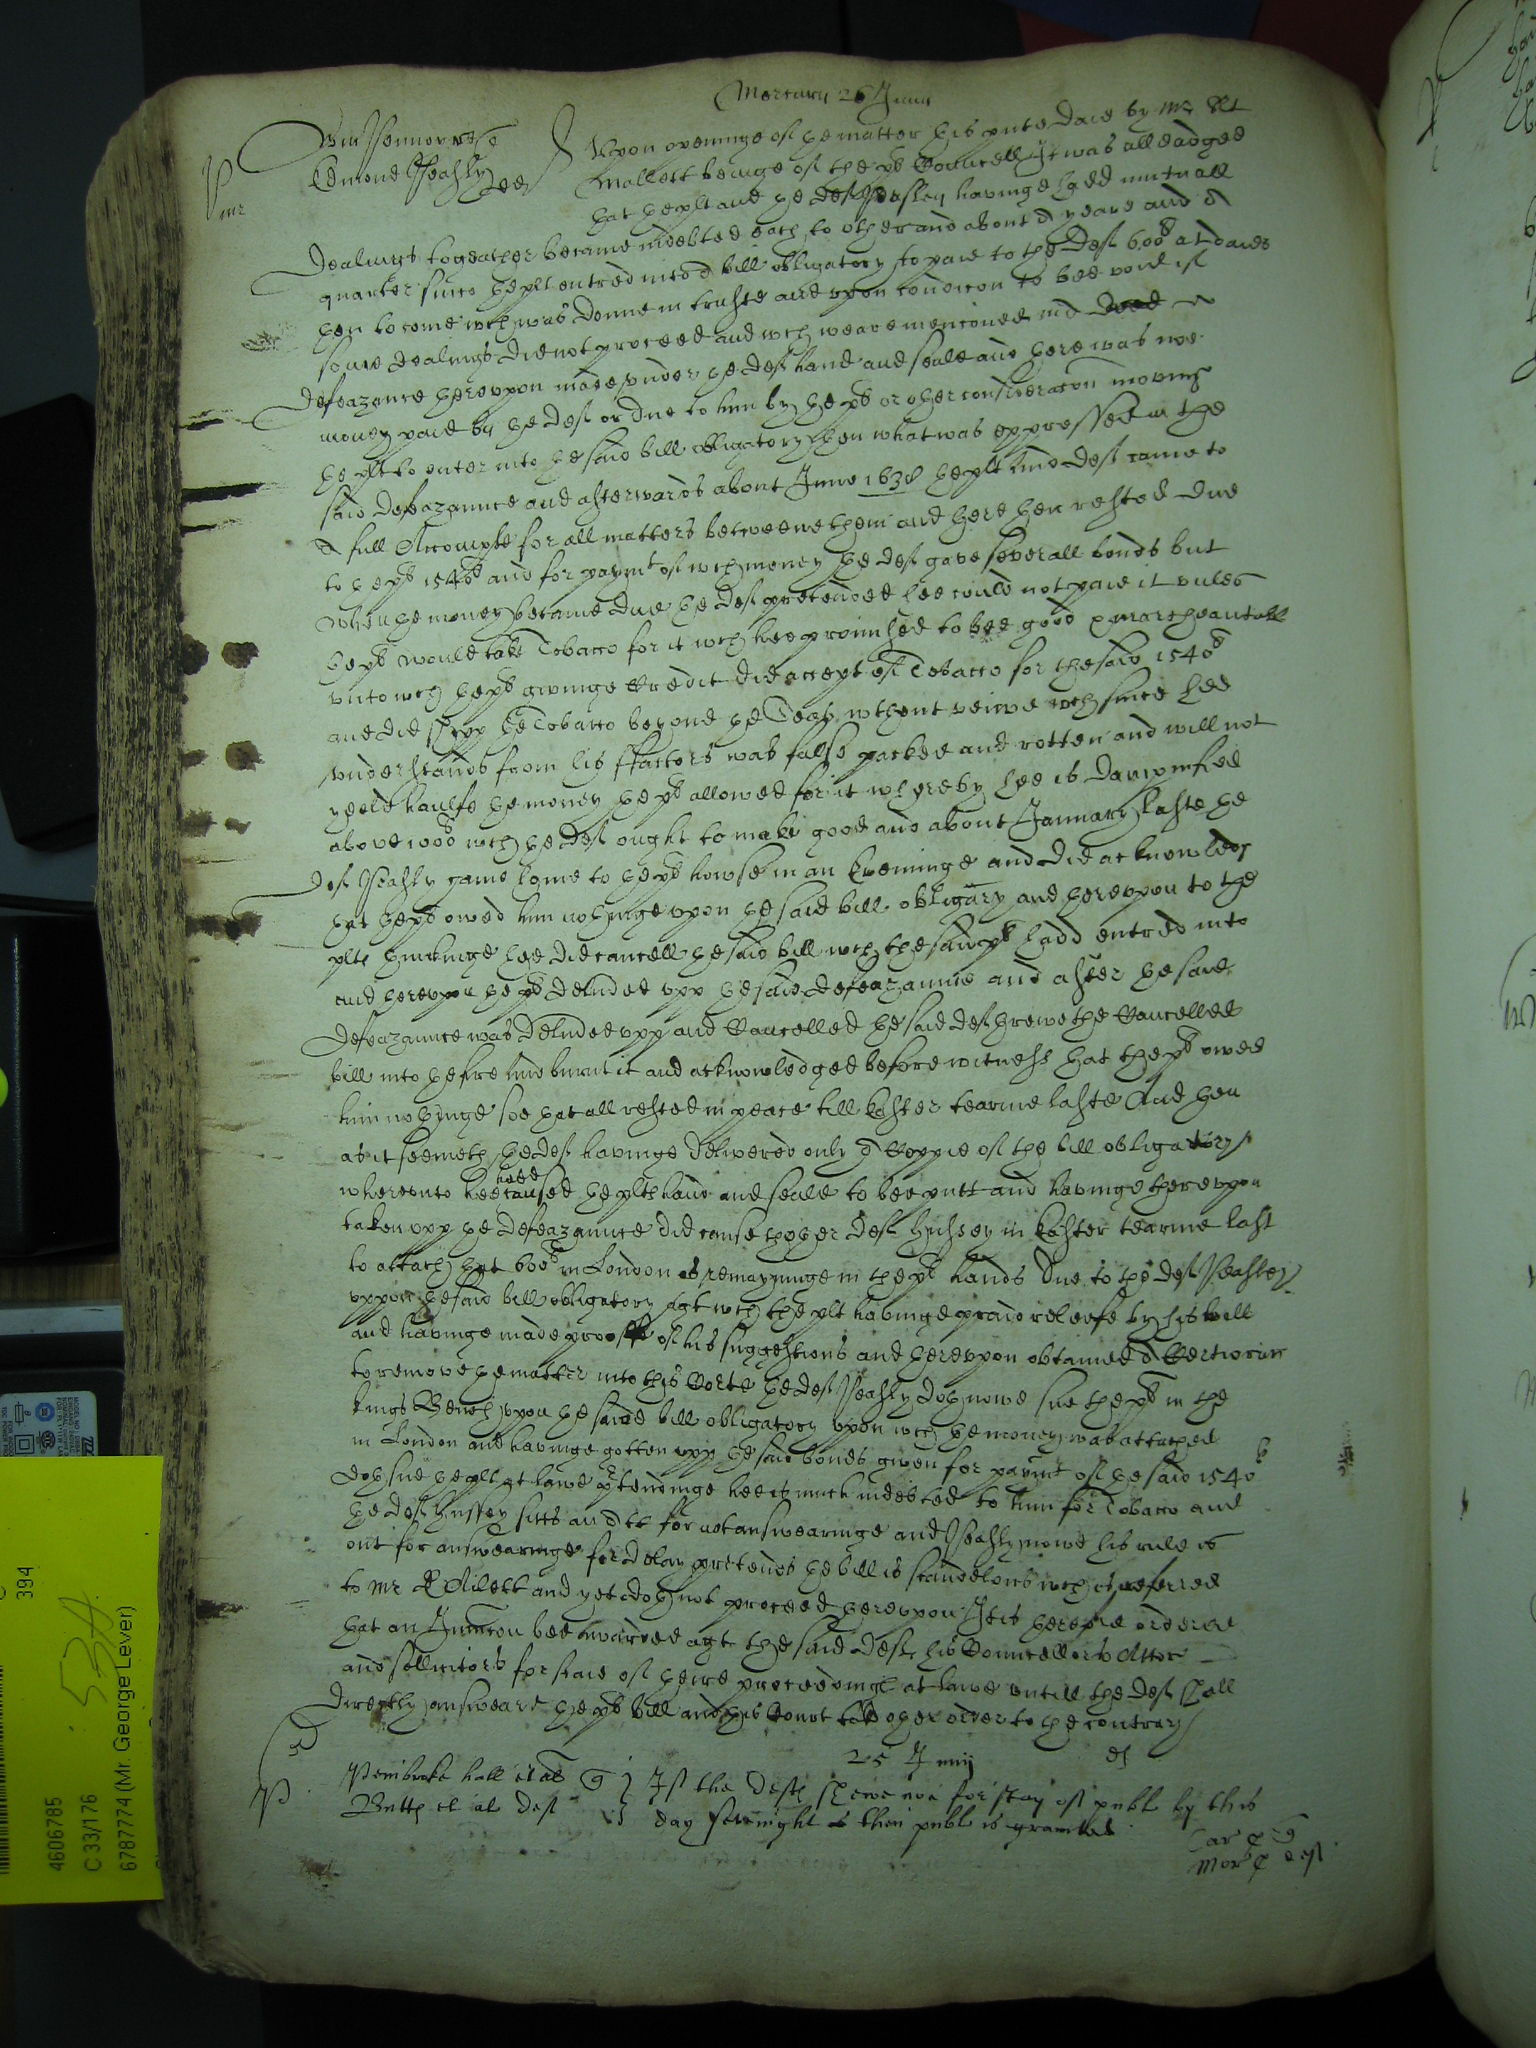 Mercurij 26 Junij
Edmond Peasly def
Upon openinge of the matter this pnte daie by Mr At
Mallett beinge of the plts Councell It was alleadged
that the plt and the def Peasley havinge had mutuall
dealings togeather became indebted each to other and about a yeare and a
quarter since the plt entred into a bill obligatory to paie to the def 600l at daies
then to come wch was donne in truste and upon condicon to bee void if
some dealings did not proceed and wch weare menconed in a deed
defeazance thereupon made under the defs hand and seale and there was noe
money paid by the def or due to him by the plt or other consideracon moving
the plt to enter into the said bill obligatory then what was expressed in the
said defeazaunce and afterwards about June 1638 the plt and def came to
a full Accompte for all matters betweene them and there then rested due
to the plt 1540l and for paymt of wch money the def gave severall bonds but
when the money became due the def pretended hee could not paie it unles
the plt would take Tobacco for it wch hee promised to bee good & marchantable
unto wch the plt givinge Credit did accept of Tobacco for the said 1540l
and did shipp the Tobacco beyond the Seas without veiwe wch since hee
understands from his ffactors was false packed and rotten and will not
yeeld haulfe the money the plt allowed for it whereby hee is dampnified
above 1000l wch the def ought to make good and about January laste the
def Peasly came home to the plts howse in an Eveninge and did acknowledg
that the plt owed him nothinge upon the said bill obligary and thereupon to the
plts thinkinge hee did cancell the said bill wch the said plt hadd entred into
and thereupon the plt delivded upp the said defeazannce and after the said
defeazaunce was delivded upp and Cancelled the said def threwe the Cancelled
bill into the fire and burnt it and acknowledged before witness that the plt owed
him nothinge soe that all rested in peace till Easter tearme laste And then
as it seemeth the def havinge delivered only a Coppie of the bill obligatory
whereunto hee had caused the plts hand and seale to bee putt and havinge thereupon
taken upp the defeazaunce did cause thother def Hussey in Easter tearme last
to attach that 600l in London as remayninge in the plts hands due to the def Peasley
uppon the said bill obligatory agt wch the plt havinge praid releefe by his bill
and havinge made prooffe of his suggestions and thereupon obtained a Certiorari
to remove the matter into this Corte the def Peasly doth nowe sue the plt in the
kings Bench upon the said bill obligatory upon wch the money was attached
in London and havinge gotten upp the said bonds given for paymt of the said 1540l
doth sue the plt at lawe ptendinge hee is much indebted to him for Tobacco and
the def Hussey sitts an Att for not answearinge and Peasly nowe his rule is
out for answearinge for delay pretends the bill is scandelous wch is referred
to Mr and yet doth not proceed thereupon It is therefore ordered
that an Iniunccon bee awarded agt the said defs his Councellors Attor
and sollicitors for staie of theire proceedings at lawe untill the def shall
directly answeare the plts bill and this Court take other order to the contrary
25 Junij
Pembroke hall et al
Butts et al def
If the defts shewe noe for stay of publ by this
day sevenight then publ is granted